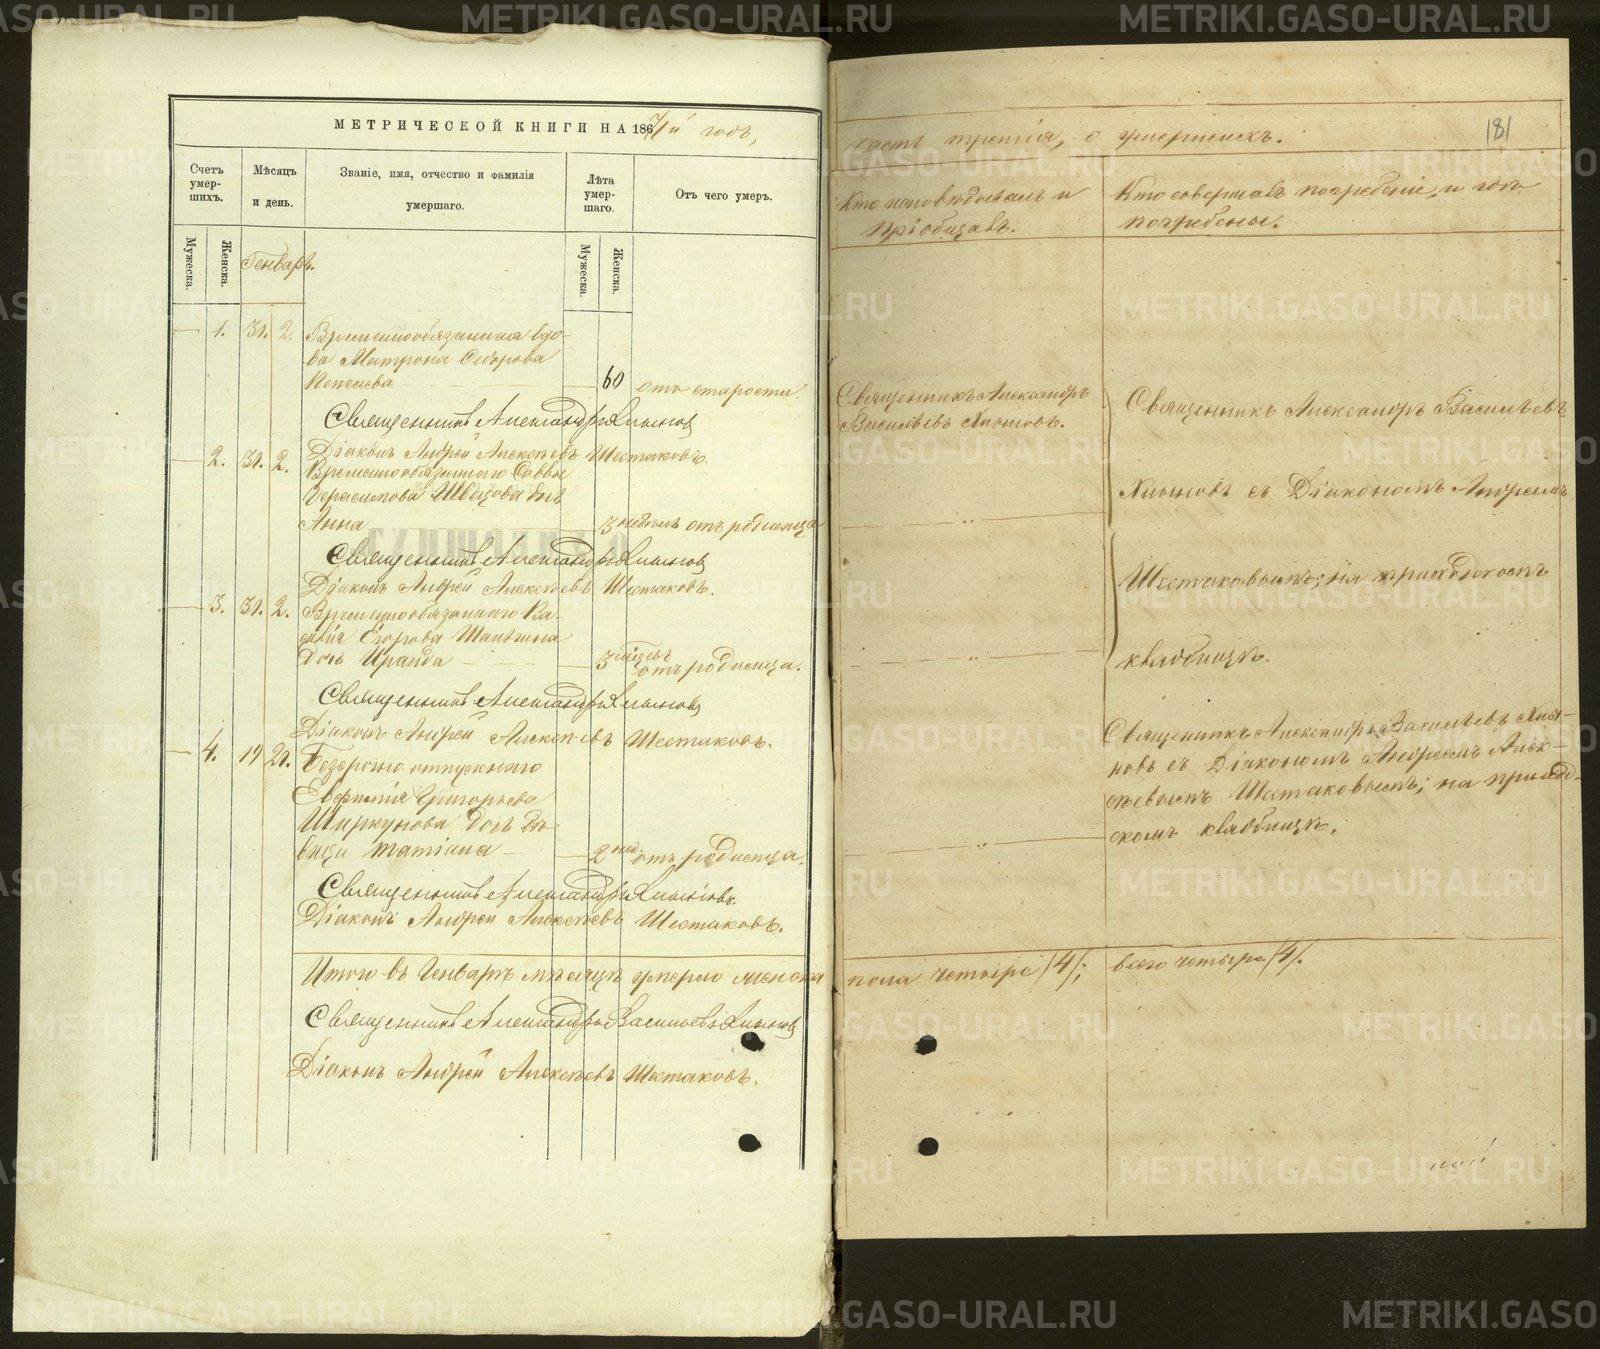 МЕТРИЧЕСКОЙ КНИГИ НА 1867й годъ,
Счетъ умерших.
Мѣсяцъ и день.
Званіе, имя, отчество и фамилія умершаго.
Лѣта умершаго.
Отъ чего умеръ.
Мужеска.
Женска.
Генварь.
Мужеска.
Женска.
1. 31. 2. Временнообязанная вдо-
ва Матрона Ѳедорова
60 отъ старости.
Священникъ Александръ Хлыновъ
Діаконъ Андрей Алексѣевъ Шестаковъ.
2. 31. 2. Временнообязаннаго Саввы
Герасимова Швецова дочь
Анна 3 недѣль отъ родимца
Священникъ Александръ Хлыновъ
Діаконъ Андрей Алексѣевъ Шестаковъ.
3. 31. 2. Временнообязаннаго Ва-
силія Егорова
дочь Ираида 3 мѣсяц. отъ родимца.
Священникъ Александръ Хлыновъ
Діаконъ Андрей Алексѣевъ Шестаковъ.
4. 19 21. Безсрочно-отпускнаго
Евфимія Григорьева
Ширкунова дочь дѣ-
вица Татіана 2 нед. отъ родимца.
Священникъ Александръ Хлыновъ.
Діаконъ Андрей Алексѣевъ Шестаковъ.
Итого въ Генварѣ мѣсяцѣ умерло женска
Священникъ Александръ Васильевъ Хлыновъ
Діаконъ Андрей Алексѣевъ Шестаковъ.
181
часть третія, о умершихъ.
Кто исповѣдовалъ и
пріобщалъ.
Кто совершалъ погребеніе, и гдѣ
погребены.
Священникъ Александръ
Васильевъ Хлыновъ.
Священникъ Александръ Васильевъ
Хлыновъ съ Діакономъ Андреемъ
Шестаковымъ; на приходскомъ
кладбищѣ.
Священникъ Александръ Васильевъ Хлы-
новъ съ Діакономъ Андреемъ Алек-
сѣевымъ Шестаковымъ; на приход-
скомъ кладбищѣ.
пола четыре /4/;
всего четыре /4/.
METRIKI.GASO-URAL.RU